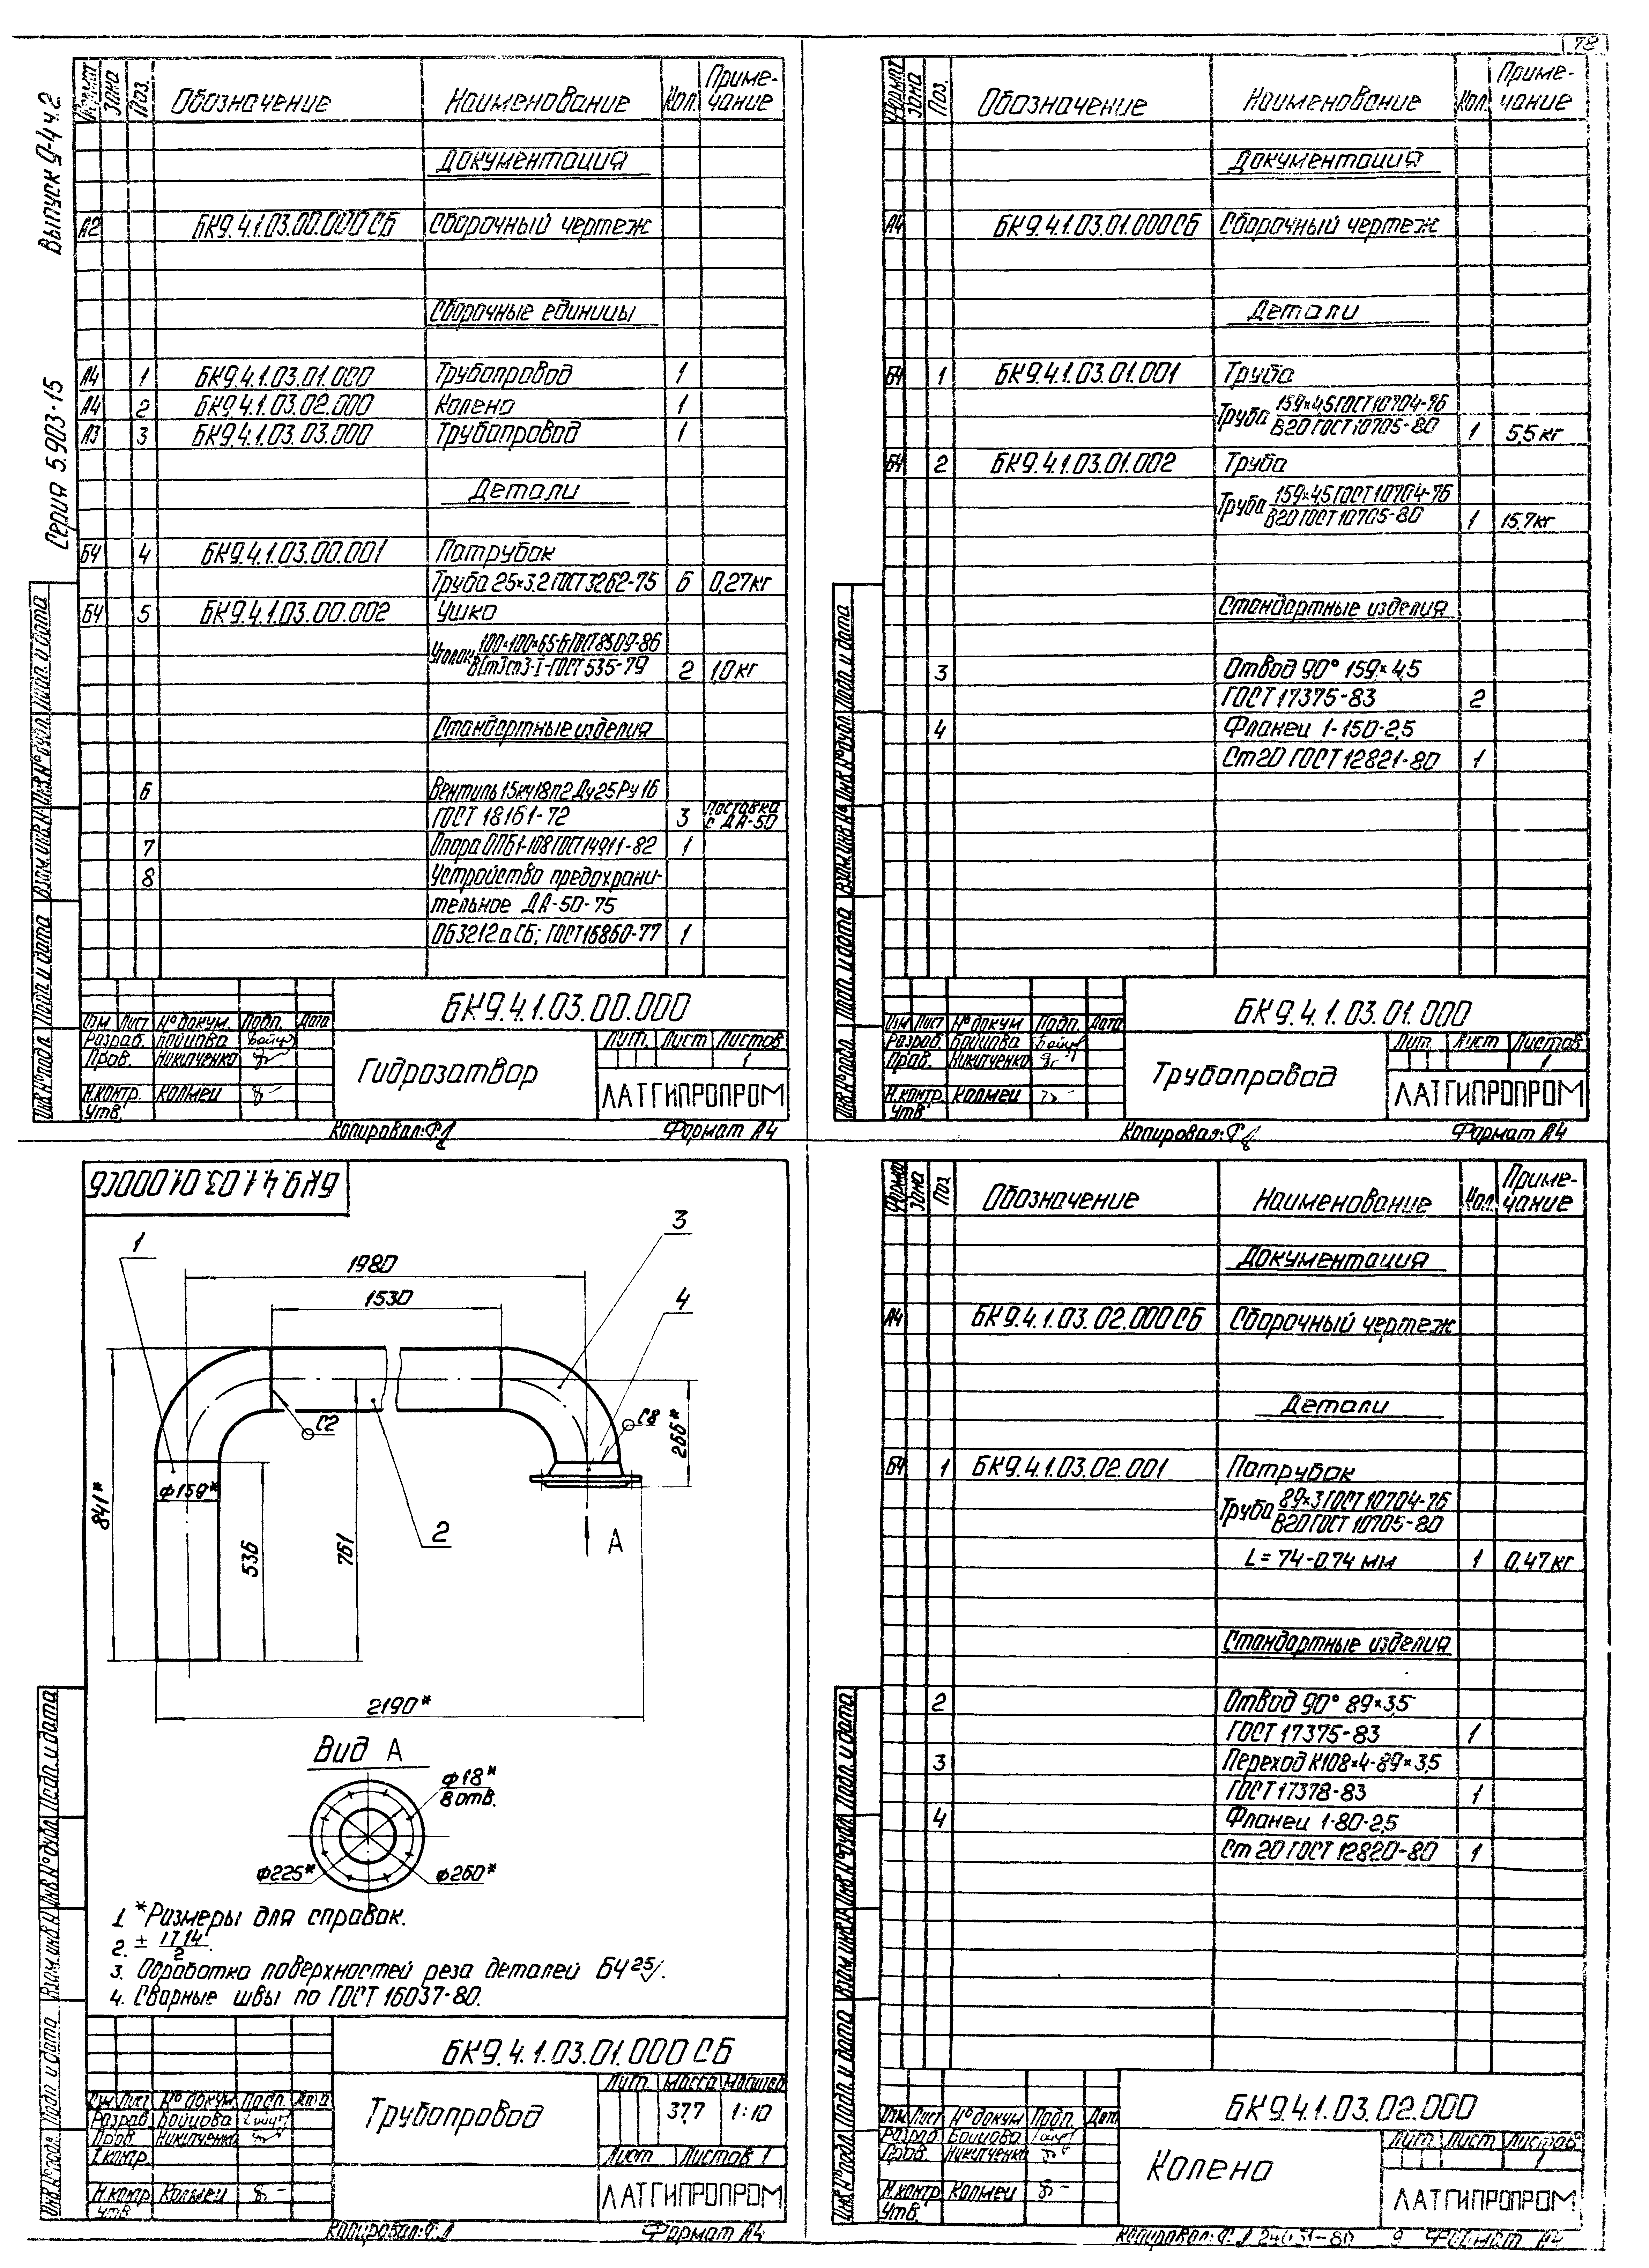 78
Выпуск 0-4 ч.2
Серия 5.903-15
Формат Зона Поз. Обозначение Наименование Кол. Приме-чание
Документация
А2 БК9.4.1.03.00.000СБ Сборочный чертеж
Сборочные единицы
А4 1 БК9.4.1.03.01.000 Трубопровод 1
А4 2 БК9.4.1.03.02.000 Колено 1
А3 3 БК9.4.1.03.03.000 Трубопровод 1
Детали
БЧ 4 БК9.4.1.03.00.001 Патрубок
Труба 25×3.2 ГОСТ 3262-75 6 0,27кг
БЧ 5 БК9.4.1.03.00.002 Ушко
Уголок 100×100×6,5-Б ГОСТ 8509-86
ВСт3сп3-I-ГОСТ 535-79 2 1,0кг
Стандартные изделия
6 Вентиль 15кч18п2 Ду25 Ру16
ГОСТ 18161-72 3 Поставка с ДА-50
7 Опора ОПБ1-108 ГОСТ 14911-82 1
8 Устройство предохрани-
тельное ДА-50-75
ОБ3212а СБ; ГОСТ 16860-77 1
БК9.4.1.03.00.000
Изм Лист № докум. Подп. Дата
Разраб. Бойцова
Пров. Никитченко
Н.контр. Колмец
Утв.
Гидрозатвор
Лит. Лист Листов
1
ЛАТГИПРОПРОМ
Копировал: Формат А4
Инв.№ подл. Подп. и дата Взам.инв.№ Инв.№ дубл. Подп. и дата
Формат Зона Поз. Обозначение Наименование Кол. Приме-чание
Документация
А4 БК9.4.1.03.01.000СБ Сборочный чертеж
Детали
БЧ 1 БК9.4.1.03.01.001 Труба
Труба 159×4,5 ГОСТ 10704-76
В20 ГОСТ 10705-80 1 5,5кг
БЧ 2 БК9.4.1.03.01.002 Труба
Труба 159×4,5 ГОСТ 10704-76
В20 ГОСТ 10705-80 1 15,7кг
Стандартные изделия
3 Отвод 90° 159×4,5
ГОСТ 17375-83 2
4 Фланец 1-150-2,5
Ст20 ГОСТ 12821-80 1
БК9.4.1.03.01.000
Изм Лист № докум Подп. Дата
Разраб. Бойцова
Пров. Никитченко
Н.контр. Колмец
Утв.
Трубопровод
Лит. Лист Листов
1
ЛАТГИПРОПРОМ
Копировал: Формат А4
Инв.№ подл. Подп. и дата Взам.инв.№ Инв.№ дубл. Подп. и дата
БК9.4.1.03.01.000СБ
1
3
1980
4
1530
С2
С8
266*
841*
ф159*
536
761
2
А
2190*
Вид А
ф18*
8 отв.
ф225*
ф260*
1. *Размеры для справок.
2. ± IT14/2.
3. Обработка поверхностей реза деталей БЧ 25/.
4. Сварные швы по ГОСТ 16037-80.
БК9.4.1.03.01.000 СБ
Изм Лист № докум Подп. Дата
Разраб Бойцова
Пров Никитченко
Т.контр.
Н.контр Колмец
Утв
Трубопровод
Лит. Масса Масштаб
37,7 1:10
Лист Листов 1
ЛАТГИПРОПРОМ
Копировал: Формат А4
Инв.№ подл. Подп. и дата Взам.инв.№ Инв.№ дубл. Подп. и дата
Формат Зона Поз Обозначение Наименование Кол. Приме-чание
Документация
А4 БК9.4.1.03.02.000СБ Сборочный чертеж
Детали
БЧ 1 БК9.4.1.03.02.001 Патрубок
Труба 89×3 ГОСТ 10704-76
В20 ГОСТ 10705-80
L=74-0,74 мм 1 0,47кг
Стандартные изделия
2 Отвод 90° 89×3,5
ГОСТ 17375-83 1
3 Переход К108×4-89×3,5
ГОСТ 17378-83 1
4 Фланец 1-80-2,5
Ст 20 ГОСТ 12820-80 1
БК9.4.1.03.02.000
Изм Лист № докум Подп. Дата
Разраб Бойцова
Пров. Никитченко
Н.контр. Колмец
Утв.
Колено
Лит. Лист Листов
1
ЛАТГИПРОПРОМ
Копировал: 24031-80 9 Формат А4
Инв.№ подл. Подп. и дата Взам.инв.№ Инв.№ дубл. Подп. и дата